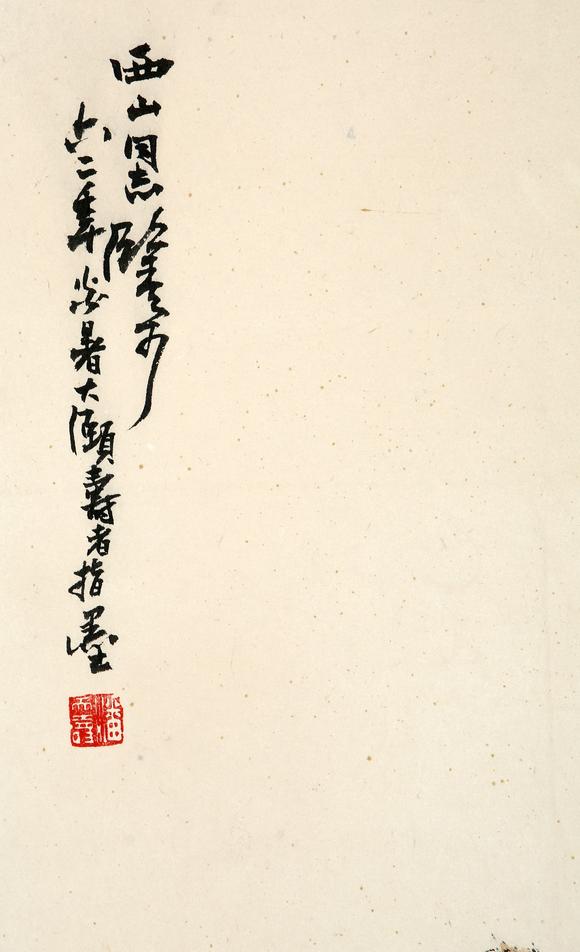 西山同志鑒可
六二年炎暑大頤壽者指墨